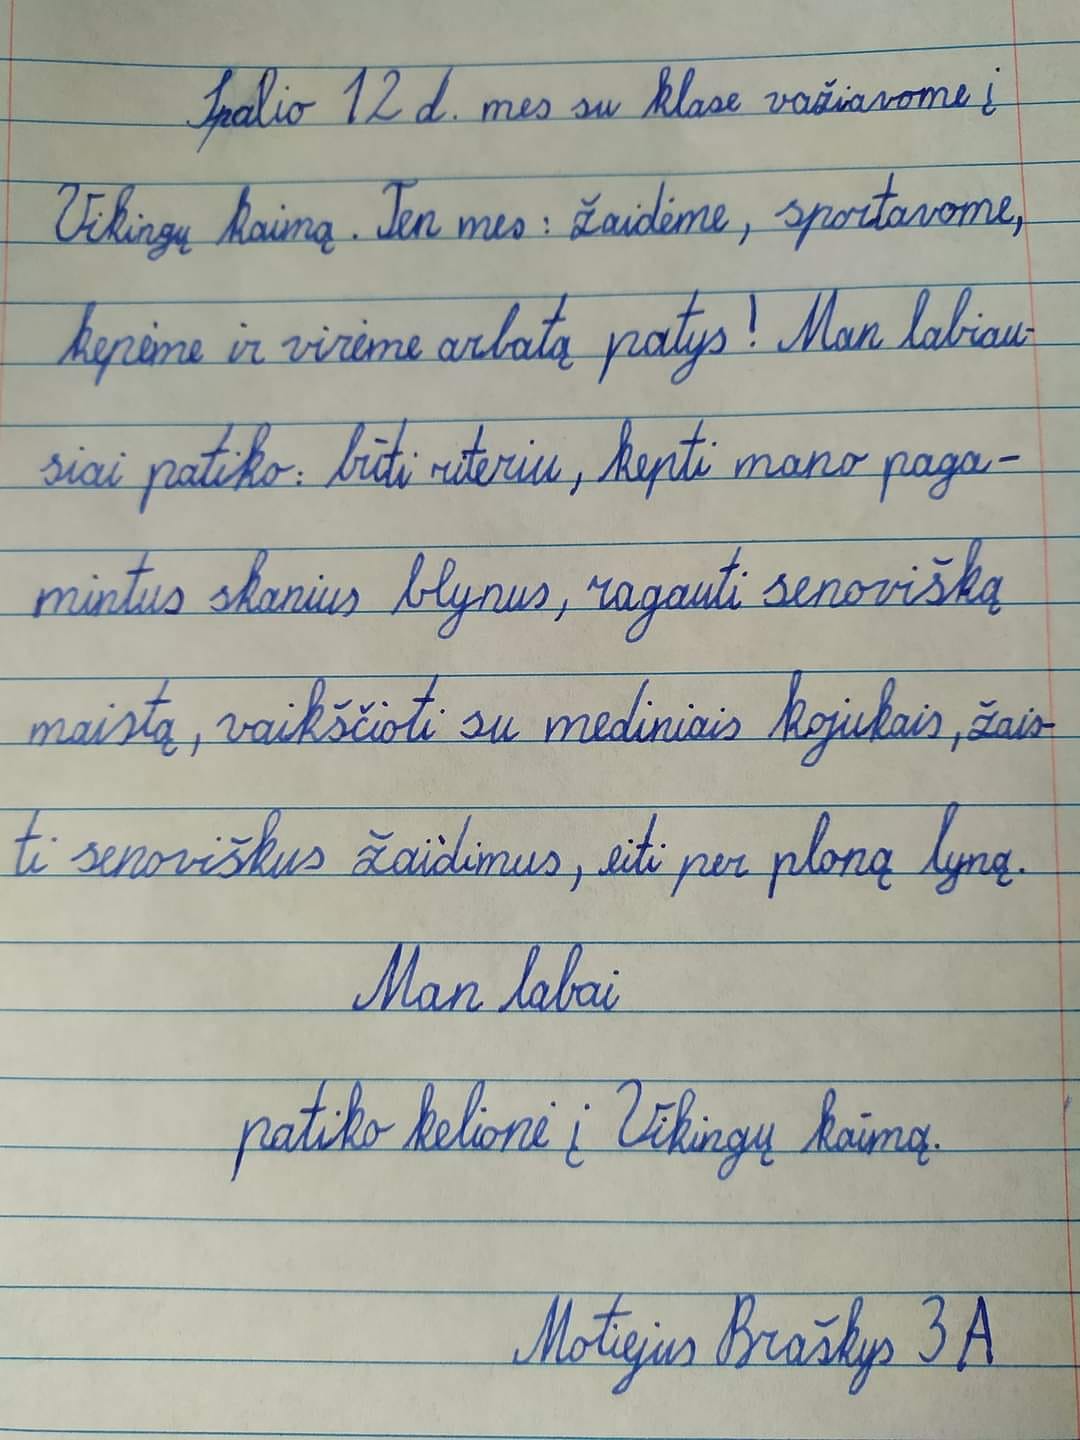 Spalio 12 d. mes su klase važiavome į
Vikingų kaimą. Ten mes: žaidėme, sportavome,
kepėme ir virėme arbatą patys! Man labiau-
siai patiko: būti riteriu, kepti mano paga-
mintus skanius blynus, ragauti senovišką
maistą, vaikščioti su mediniais kojukais, žais-
ti senoviškus žaidimus, eiti per ploną lyną.
Man labai
patiko kelionė į Vikingų kaimą.
Motiejus Braškys 3 A